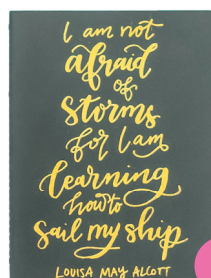 I am not
afraid
of
storms
for I am
learning
how to
sail my ship
LOUISA MAY ALCOTT